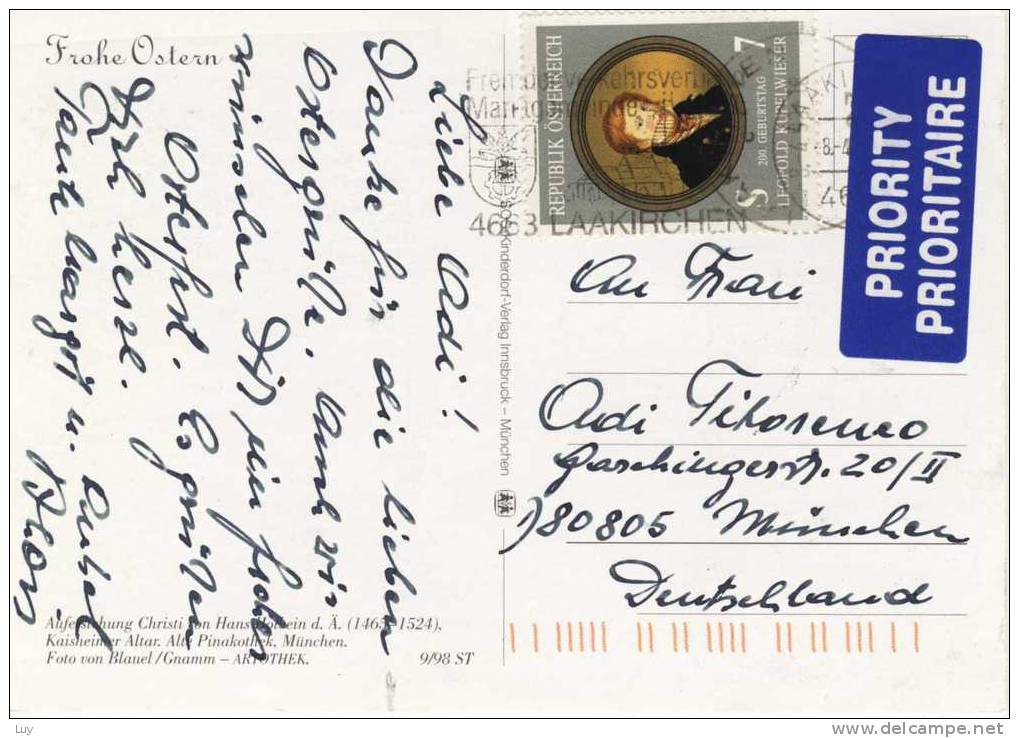 Frohe Ostern
Liebe Andi!
Danke für die lieben
Ostergrüße. Auch wir
wünschen Dir ein frohes
Osterfest. Es grüßen
Dich herzl.
Tante Margot u. Onkel
Alois
Auferstehung Christi von Hans Holbein d. Ä. (1465–1524),
Kaisheimer Altar. Alte Pinakothek, München.
Foto von Blauel/Gnamm – ARTOTHEK.
9/98 ST
SOS-Kinderdorf-Verlag Innsbruck – München
REPUBLIK ÖSTERREICH
S 7
200. GEBURTSTAG
LEOPOLD KUPELWIESER
Fremdenverkehrsverbände
4663 LAAKIRCHEN
PRIORITY
PRIORITAIRE
An Frau
Andi Titorenco
Garchingerstr. 20/II
D 80805 München
Deutschland
Luy
www.delcampe.net